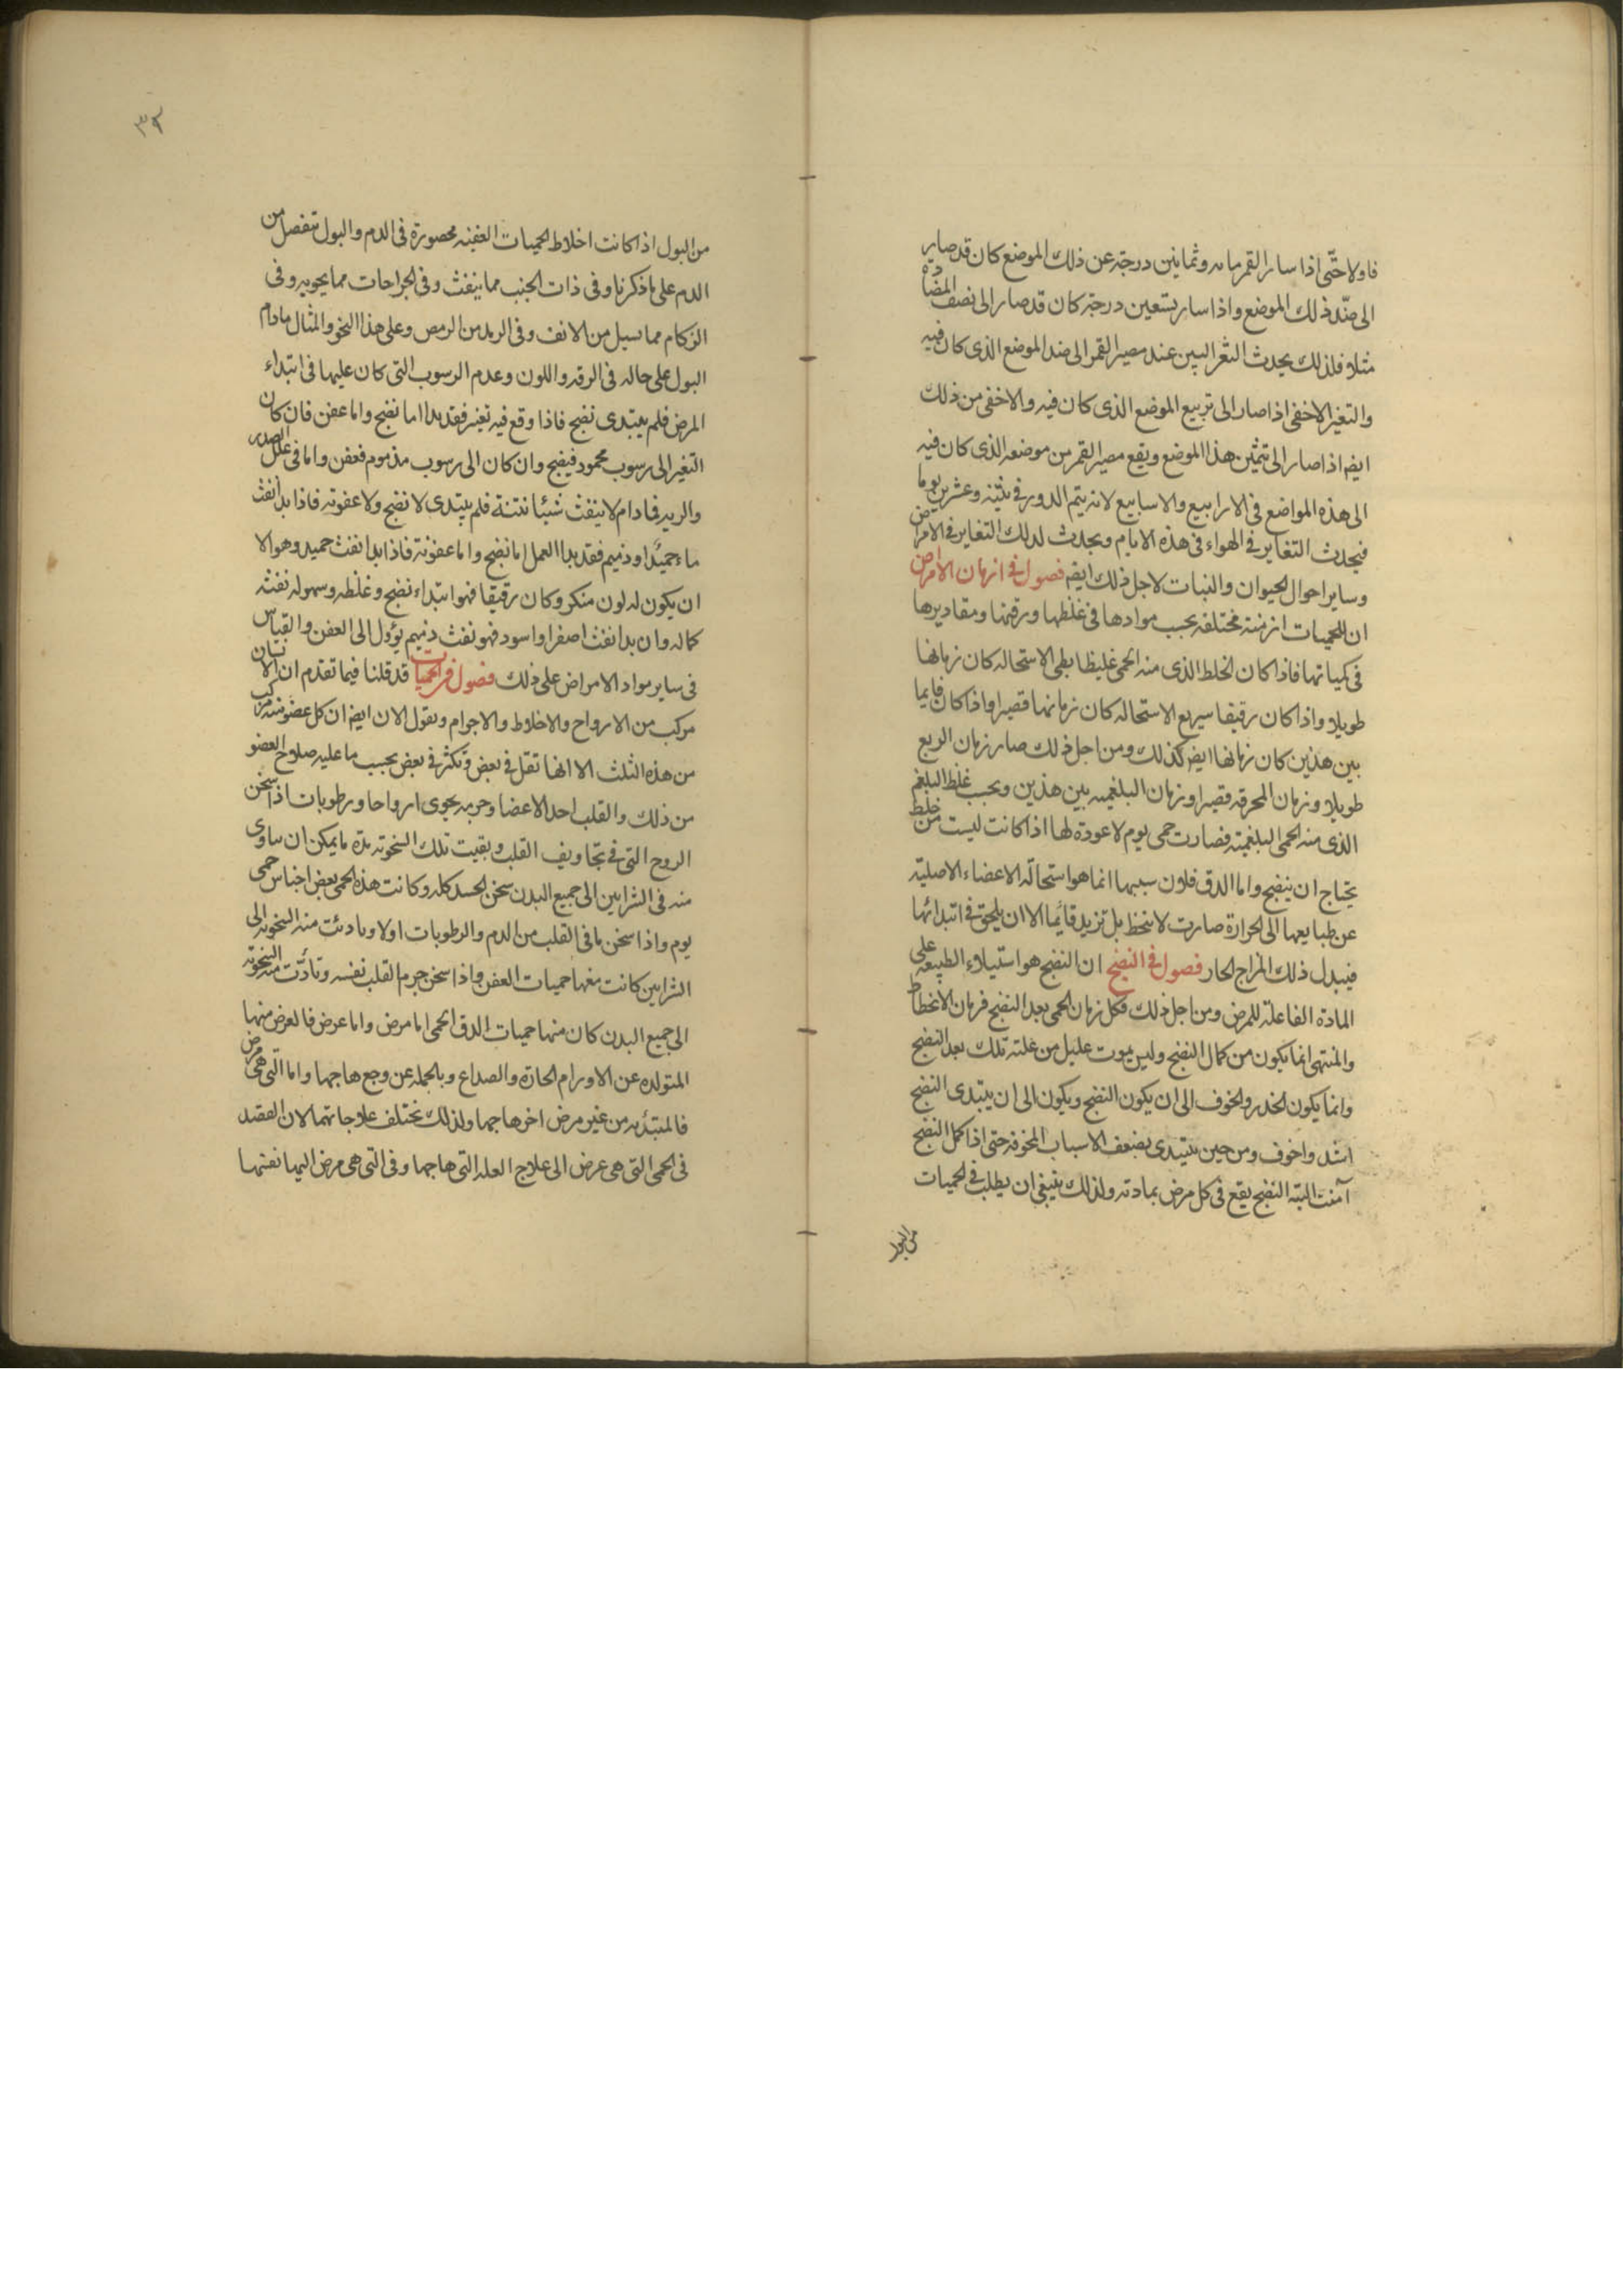 فاولا حتّى اذا سار القمر مايه وثمانين درجة عن ذلك الموضع كان قد صار
الى ضدّ ذلك الموضع واذا سار تسعين درجة كان قد صار الى نصف المضادة
مثلا فلذلك يحدث التغير البين عند مصير القمر الى ضد الموضع الذى كان فيه
والتغير الاخفى اذا صار الى تربيع الموضع الذى كان فيه والاخفى من ذلك
ايضه اذا صار الى تثمين هذا الموضع ويقع مصير القمر من موضعه الذى كان فيه
الى هذه المواضع فى الارابيع والاسابيع لانه يتم الدور فى ثمنية وعشرين يوما
فيحدث التغاير فى الهواء فى هذه الايام ويحدث لذلك التغاير فى الامراض
وساير احوال الحيوان والنبات لاجل ذلك ايضه فصول فى ازمان الامراض
ان للحميات ازمنة مختلفة بحسب موادها فى غلظها ورقتها ومقاديرها
فى كمياتها فاذا كان الخلط الذى منه الحمى غليظا بطى الاستحاله كان زمانها
طويلا واذا كان رقيقا سريع الاستحاله كان زمانها قصيرا واذا كان فايما
بين هذين كان زمانها ايضه كذلك ومن اجل ذلك صار زمان الربع
طويلا وزمان المحرقه قصيرا وزمان البلغميه بين هذين وبحسب غلظ البلغم
الذى منه الحمى البلغمية فصارت حمى يوم لا عودة لها اذا كانت ليست من خلط
يحتاج ان ينضج واما الدق فلان سببها انما هو استحالة الاعضاء الاصلية
عن طبايعها الى الحرارة صارت لا تنحط بل تزيد قائما الا ان يلحق فى ابتدائها
فيبدل ذلك المزاج الحار فصول فى النضج ان النضج هو استيلاء الطبيعه على
المادة الفاعلة للمرض ومن اجل ذلك فكل زمان الحمى بعد النضج فزمان الانحطاط
والمنتهى انما يكون من كمال النضج وليس يموت عليل من علته تلك بعد النضج
وانما يكون الحذر والخوف الى ان يكون النضج ويكون الى ان يبتدى النضج
اشد واخوف ومن حين يبتدى يضعف الاسباب المخوفة حتى اذا كمل النضج
آمنت البتة النضج يقع فى كل مرض بمادته ولذلك ينبغى ان يطلب فى الحميات
من البول
٣٢
من البول اذا كانت اخلاط الحميات العفنه محصورة فى الدم والبول تنفصل من
الدم على ما ذكرنا وفى ذات الجنب مما ينفث وفى الجراحات مما يحويه وفى
الزكام مما يسيل من الانف وفى الرمد من الرمص وعلى هذا النحو والمثال مادام
البول على حاله فى الرقه واللون وعدم الرسوب التى كان عليها فى ابتداء
المرض فلم يبتدى نضج فاذا وقع فيه تغير فقد بدا اما نضج واما عفن فان كان
التغير الى رسوب محمود فنضج وان كان الى رسوب مذموم فعفن واما فى علل الصدر
والريه فما دام لا ينفث شيئا نتنة فلم يبتدى لا نضج ولا عفونة فاذا بدا نفث
ماء حميدا وذميم فقد بدا العمل اما نضج واما عفونة فاذا بدا نفث حميد وهو الا
ان يكون له لون منكر وكان رقيقا فهو ابتداء نضج وغلظه وسهوله نفثه
كماله وان بدا نفث اصفر او اسود فهو نفث ذميم يؤول الى العفن والقياس
فى ساير مواد الامراض على ذلك فصول فى الحميات قد قلنا فيما تقدم ان الانسان
مركب من الارواح والاخلاط والاجرام ونقول الان ايضه ان كل عضو منه مركب
من هذه الثلث الا انها تقل فى بعض وتكثر فى بعض بحسب ما عليه صلاح العضو
من ذلك والقلب احد الاعضا وجرمه يحوى ارواحا ورطوبات اذا سخن
الروح التى فى تجاويف القلب وبقيت تلك السخونة مدة ما يمكن ان يساوى
منه فى الشرايين الى جميع البدن سخن الجسد كله وكانت هذه الحمى بعض اجناس حمى
يوم واذا سخن ما فى القلب من الدم والرطوبات اولا وبادئت منه السخونة الى
الشرايين كانت منها حميات العفن واذا سخن جرم القلب نفسه وتأدّت منه السخونة
الى جميع البدن كان منها حميات الدق الحمى اما مرض واما عرض فالعرض منها
المتولده عن الاورام الحارة والصداع وبالجمله عن وجع هاجها واما التى هى مرض
فالمبتدئه من غير مرض اخر هاجها ولذلك تختلف علاجاتهما لان القصد
فى الحمى التى هى عرض الى علاج العله التى هاجها وفى التى هى مرض اليها نفسها